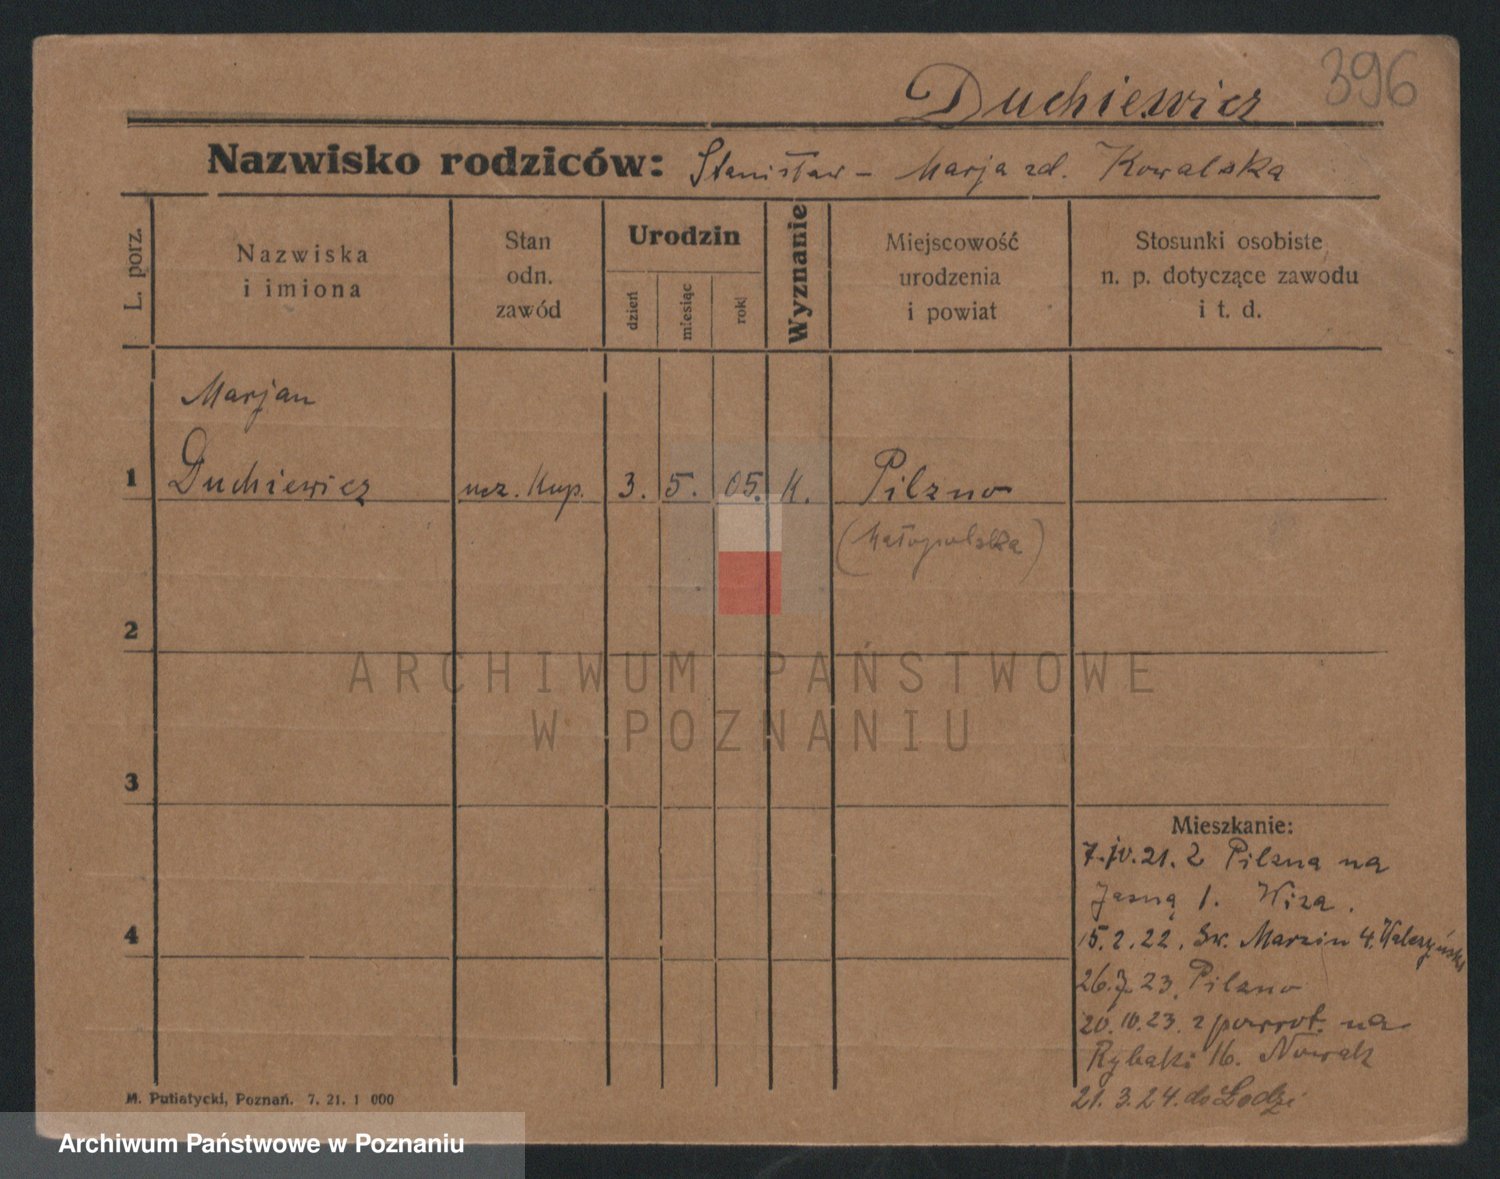 396
Duchiewicz
Nazwisko rodziców: Stanisław – Marja zd. Kowalska
L. porz.
Nazwiska
i imiona
Stan
odn.
zawód
Urodzin
dzień
miesiąc
rok
Wyznanie
Miejscowość
urodzenia
i powiat
Stosunki osobiste
n. p. dotyczące zawodu
i t. d.
Marjan
1 Duchiewicz ucz. kup. 3. 5. 05. K. Pilzno
(Małopolska)
2
3
4
Mieszkanie:
7.IV.21. z Pilzna na
Jasną 1. Wiza.
15.2.22. Św. Marcin 4.
26.7.23. Pilzno
20.IV.23. z powrot. na
Rybaki 16. Nowak
21.3.24. do Łodzi
M. Putiatycki, Poznań. 7. 21. 1 000
ARCHIWUM PAŃSTWOWE
W POZNANIU
Archiwum Państwowe w Poznaniu